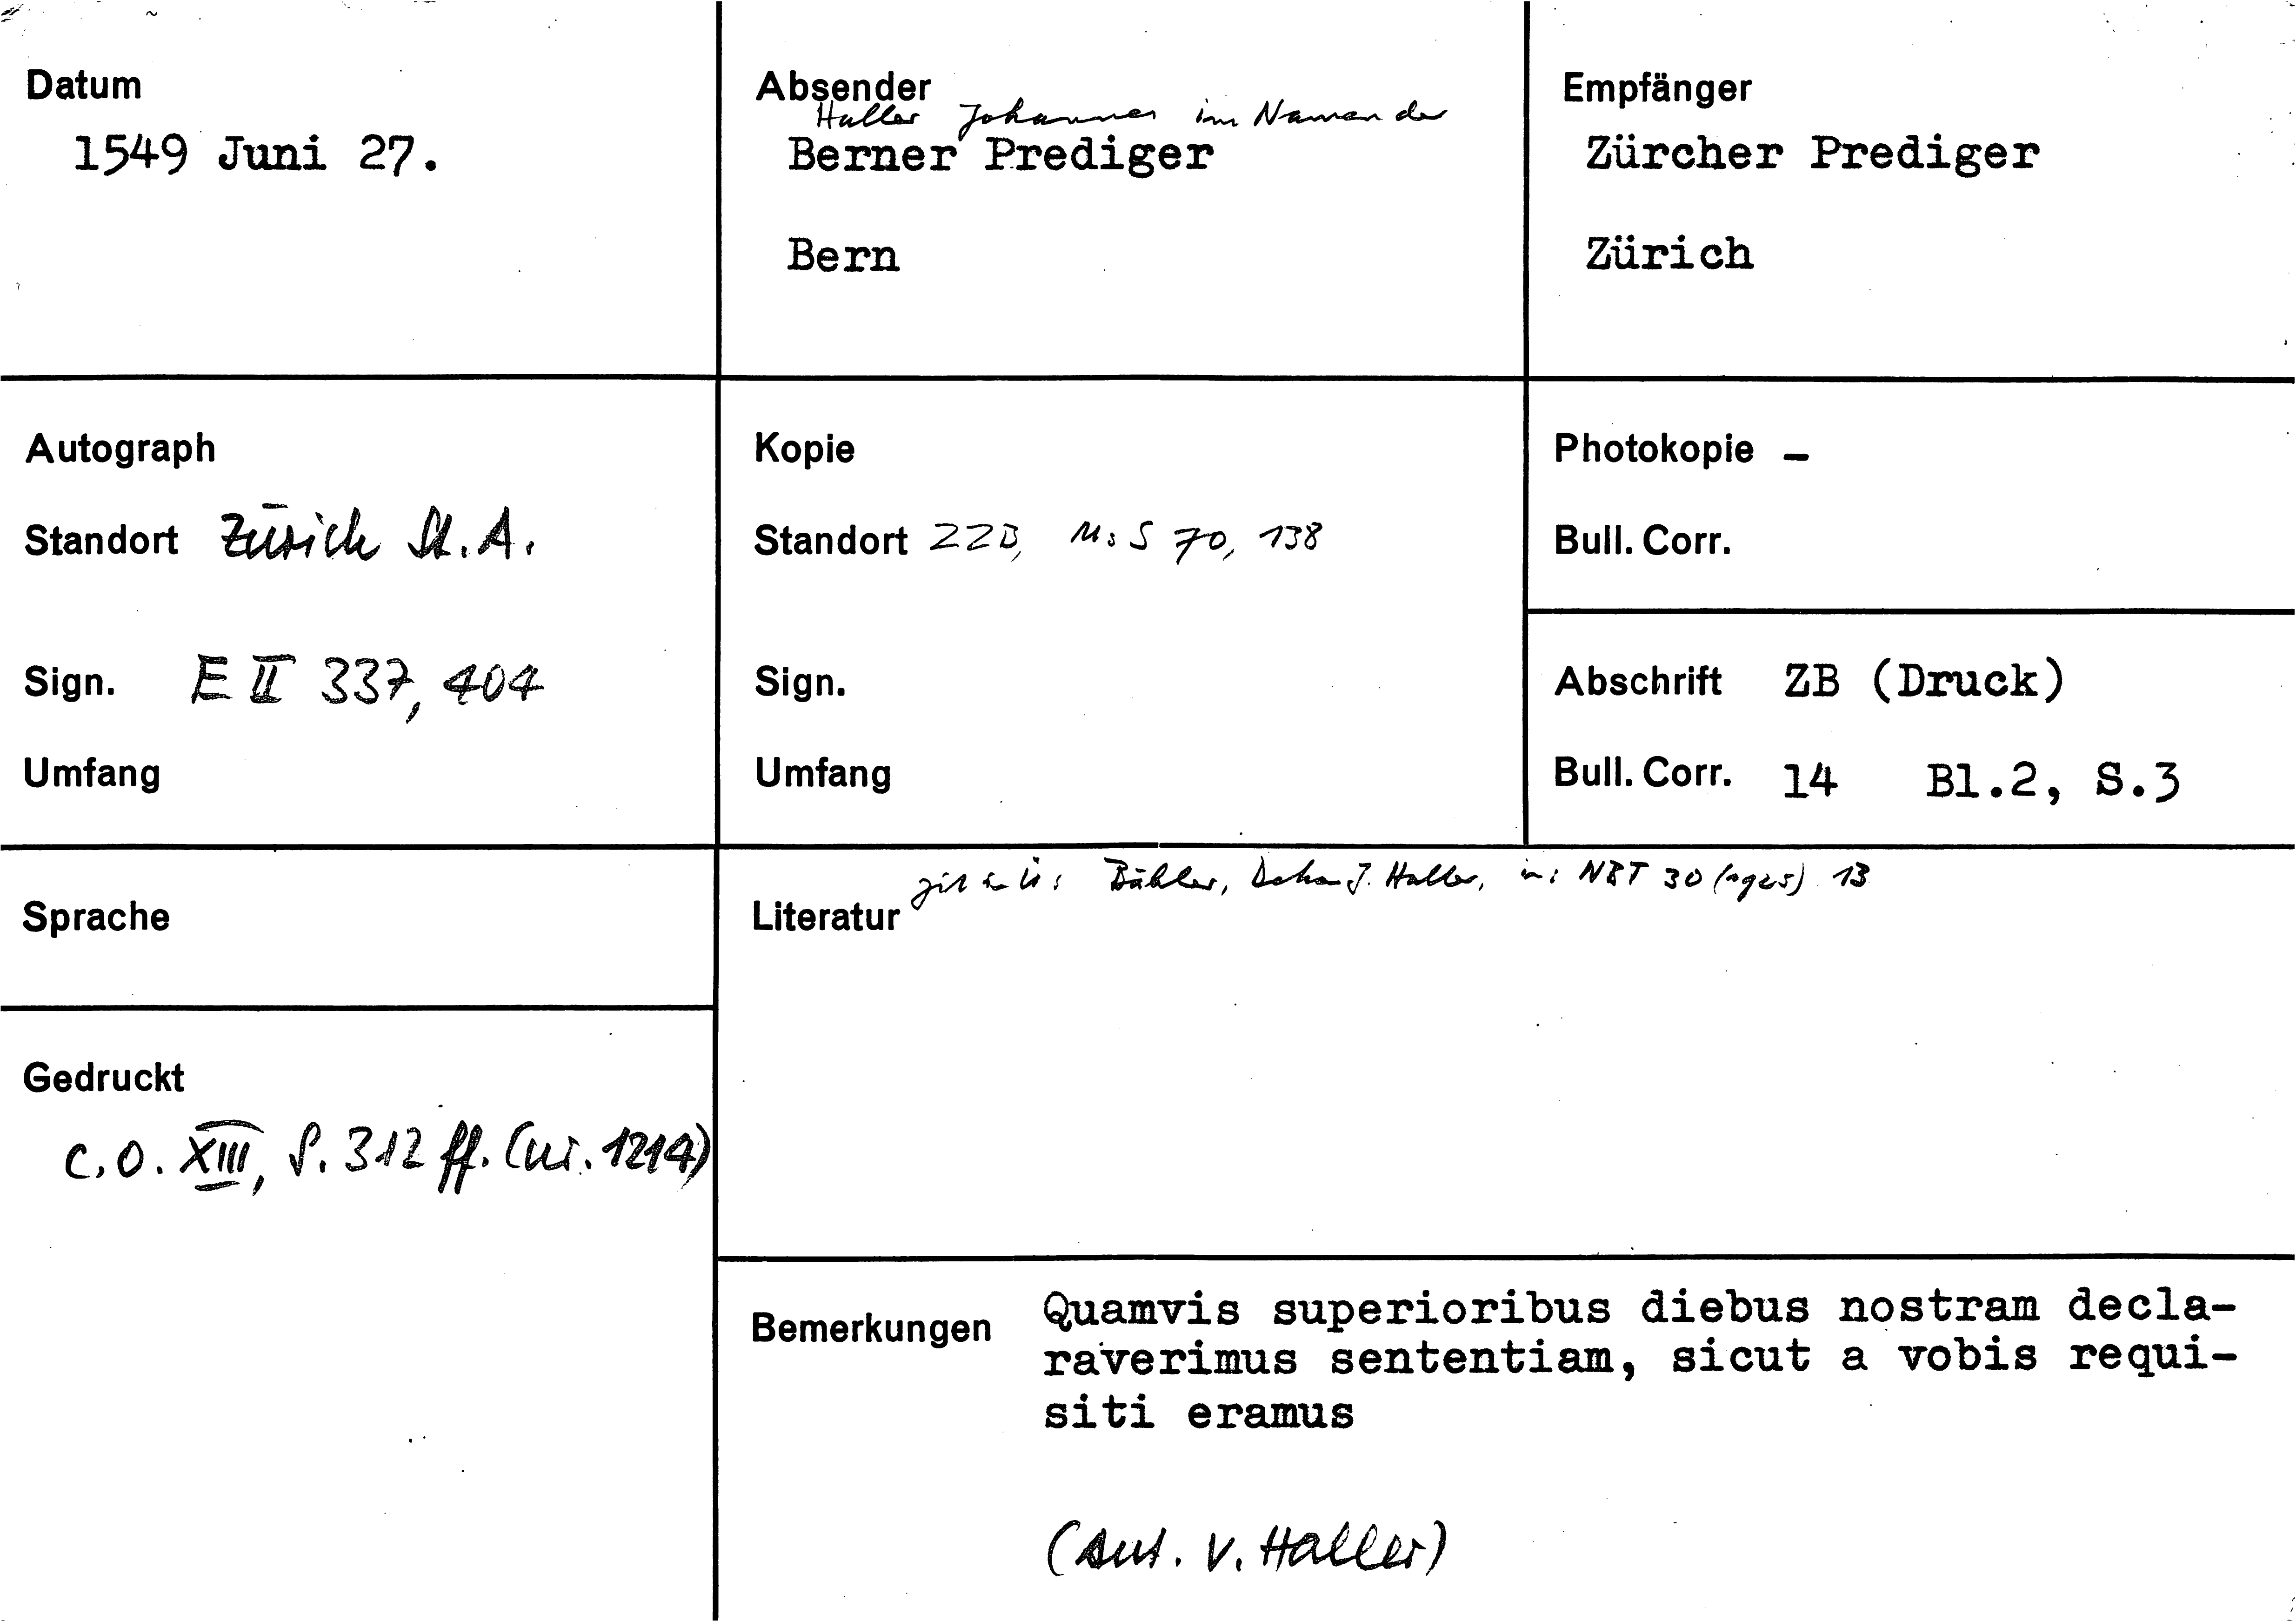 Datum
1549 Juni 27.
Absender
Haller Johannes im Namen der
Berner Prediger
Bern
Empfänger
Zürcher Prediger
Zürich
Autograph
Standort Zürich St. A.
Sign. E II 337, 404
Umfang
Kopie
Standort ZZB, Ms S 70, 138
Sign.
Umfang
Photokopie –
Bull. Corr.
Abschrift ZB (Druck)
Bull. Corr. 14 Bl.2, S.3
Sprache
Gedruckt
C.O. XIII, S. 312 ff. (Nr. 1214)
Literatur zit in Bähler, Dekan J. Haller, in: NBT 30 (1925) 13
Bemerkungen Quamvis superioribus diebus nostram decla-
raverimus sententiam, sicut a vobis requi-
siti eramus
(Aut. v. Haller)